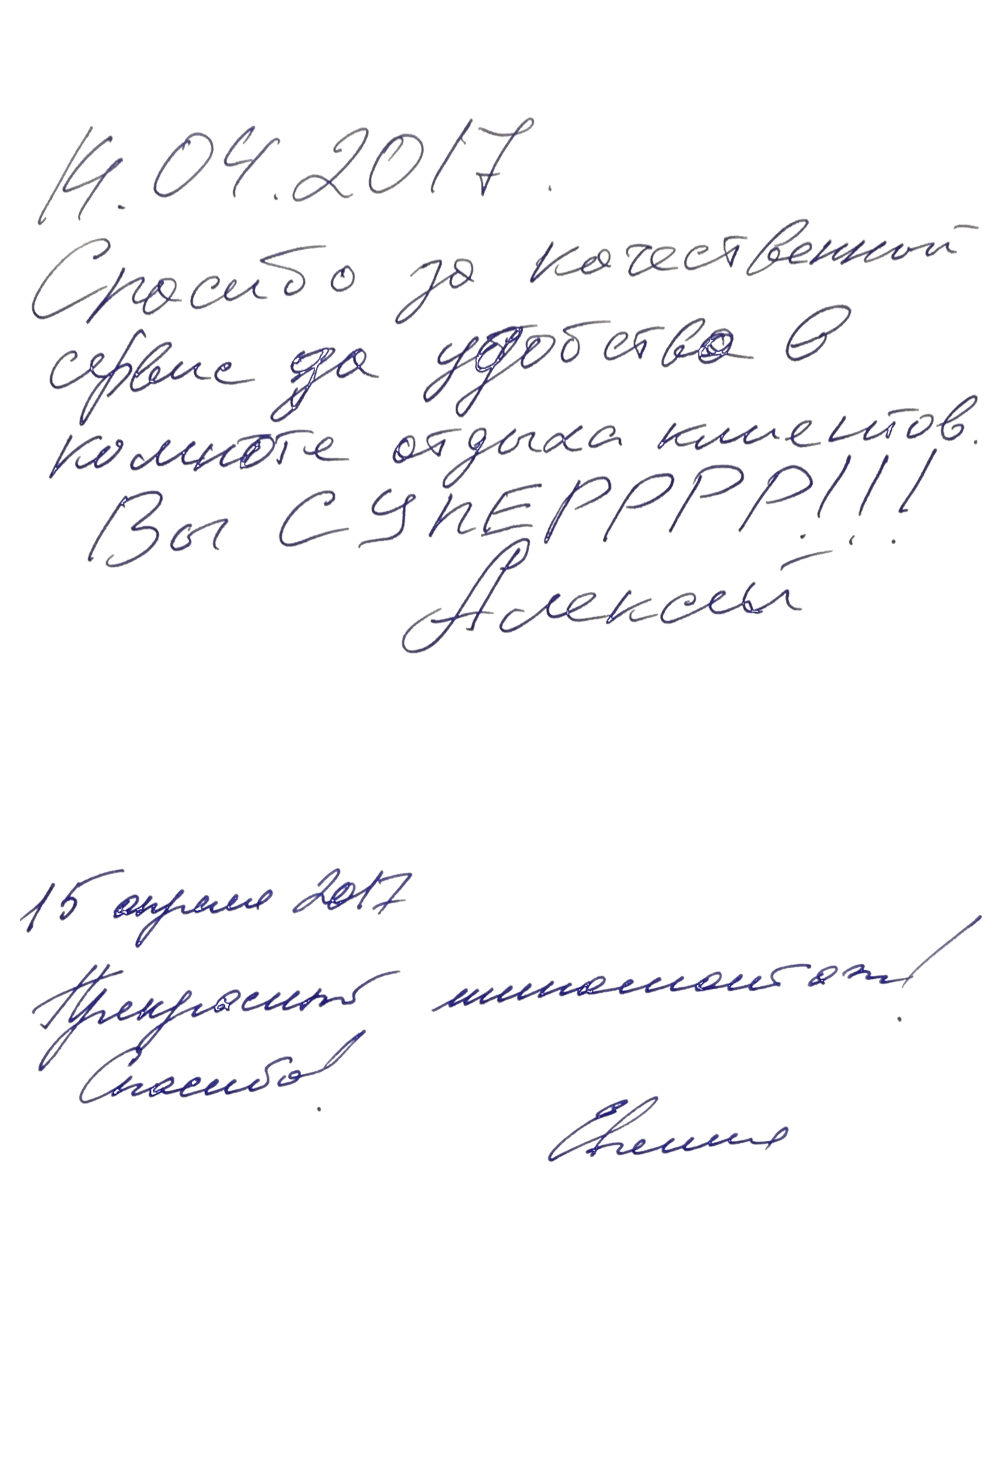 14.04.2017.
Спасибо за качественной
сервис за удобства в
комнате отдыха клиентов.
Вы СУПЕРРРР!!!
Алексей
15 апреля 2017
Прекрасный шиномонтаж!
Спасибо!
Евгения